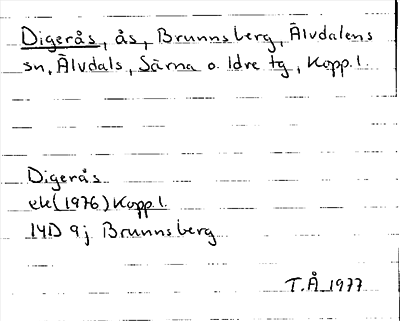 Digerås, ås, Brunnsberg, Älvdalens
sn, Älvdals, Särna o. Idre tg, Kopp. l.
Digerås
ek (1976) Kopp. l.
14D 9j Brunnsberg
T.Å 1977